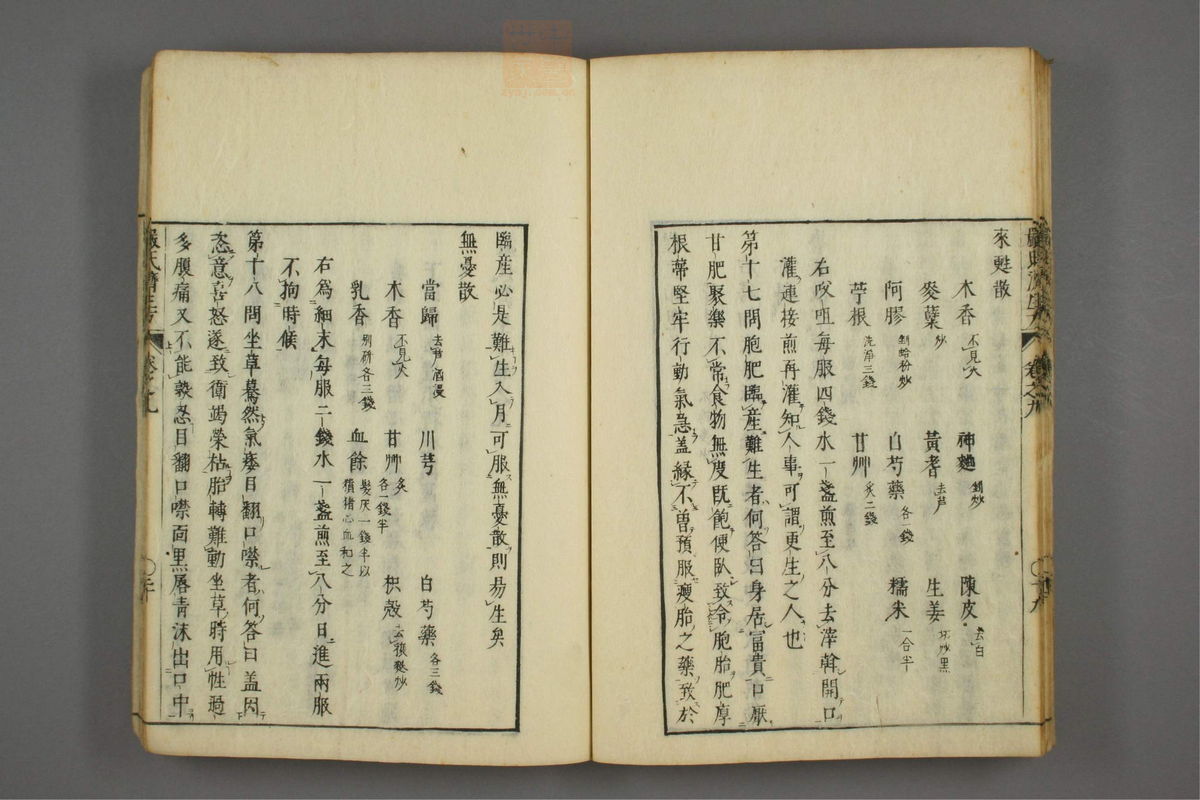 來甦散
木香 不見火 神麯 剉炒 陳皮 去白
麥蘗 炒 黃耆 去芦 生姜 切炒黑
阿膠 剉蛤粉炒 白芍藥 各一錢 糯米 一合半
苧根 洗淨三錢 甘艸 炙二錢
右㕮咀每服四錢水一盞煎至八分去滓斡開口
灌連接煎再灌知人事可謂更生之人也
第十七問胞肥臨產難生者何答曰身居富貴口厭
甘肥聚樂不常食物無度既飽便臥致令胞胎肥厚
根蔕堅牢行動氣急盖緣不曽預服瘦胎之藥致於
臨産必是難生入月可服無憂散則易生矣
無憂散
當歸 去芦酒浸 川芎 白芍藥 各三錢
木香 不見火 甘艸 炙 各一錢半 枳殼 去穰麩炒
乳香 別研各三錢 血餘 髮灰一錢半以獖猪心血和之
右為細末每服二錢水一盞煎至八分日進兩服
不拘時候
第十八問坐草驀然氣痿目翻口噤者何答曰盖因
恣意喜怒遂致衛竭榮枯胎轉難動坐草時用性過
多腹痛又不能熟忍目翻口噤面黒唇青沫出口中
嚴氏濟生方 卷之九